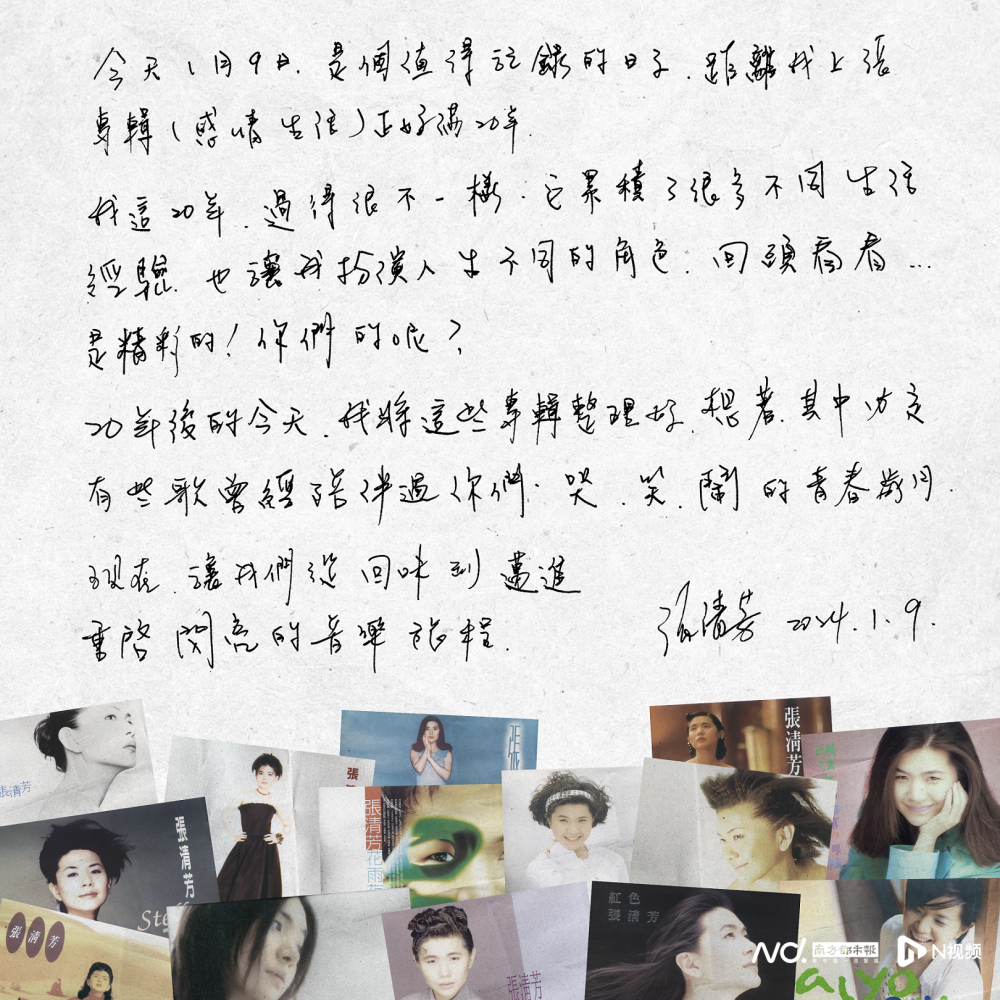 今天1月9日.是個值得記錄的日子.距離我上張
專輯(感情生活)正好滿20年.
我這20年.過得很不一樣.它累積了很多不同生活
經驗.也讓我扮演人生不同的角色.回頭看看...
是精彩的!你們的呢?
20年後的今天.我將這些專輯整理好.想著.其中必定
有些歌曾經陪伴過你們.哭.笑.鬧的青春歲月.
現在.讓我們從回味到邁進
重啓閃亮的音樂旅程.
張清芳 2024.1.9.
張清芳
張清芳
張清芳
張清芳
張
張清芳花雨
張
張清芳
張清芳
紅色
張清芳
aiyo
nd.南方都市報
N视频